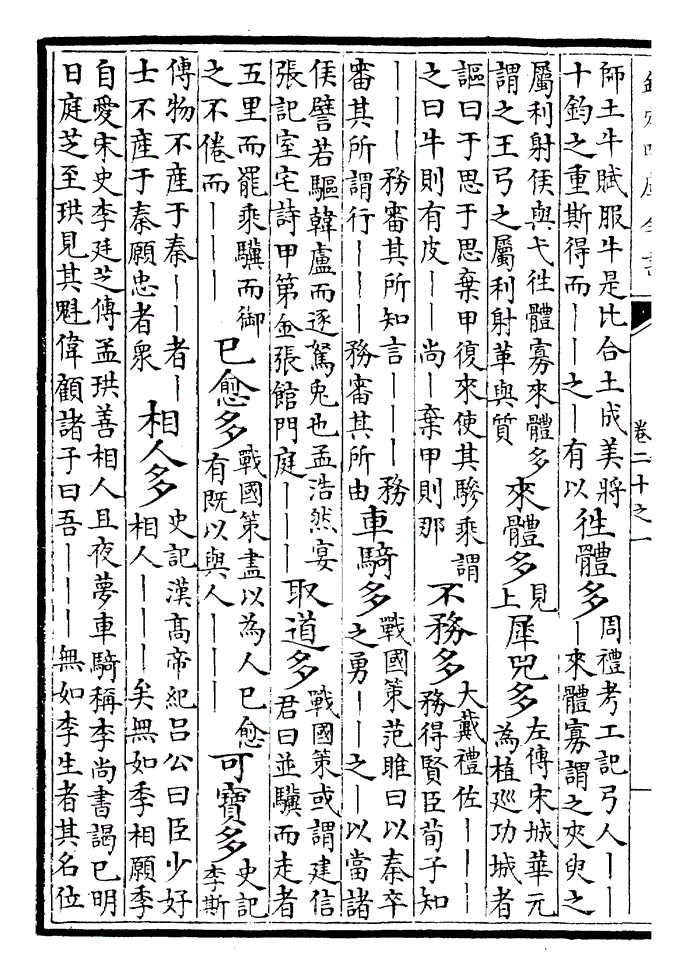 欽定四庫全書
卷二十之一
師土牛賦服牛是比合土成美將
十鈞之重斯得而——之—有以
徃體多
周禮考工記弓人——
—來體寡謂之夾臾之
屬利射侯與弋徃體寡來體多
謂之王弓之屬利射革與質
來體多
見
上
犀兕多
左傳宋城華元
為植廵功城者
謳曰于思于思棄甲復來使其驂乘謂
之曰牛則有皮——尚—棄甲則那
不務多
大戴禮佐———
務得賢臣荀子知
———務審其所知言———務
審其所謂行———務審其所由
車騎多
戰國策范雎曰以秦卒
之勇——之—以當諸
侯譬若驅韓盧而逐駑兎也孟浩然宴
張記室宅詩甲第金張館門庭———
取道多
戰國策或謂建信
君曰並驥而走者
五里而罷乘驥而御
之不倦而———
已愈多
戰國策盡以為人已愈
有既以與人———
可寶多
史記
李斯
傳物不産于秦——者—
士不産于秦願忠者衆
相人多
史記漢髙帝紀吕公曰臣少好
相人———矣無如季相願季
自愛宋史李廷芝傳孟珙善相人且夜夢車騎稱李尚書謁已明
日庭芝至珙見其魁偉顧諸子曰吾———無如李生者其名位